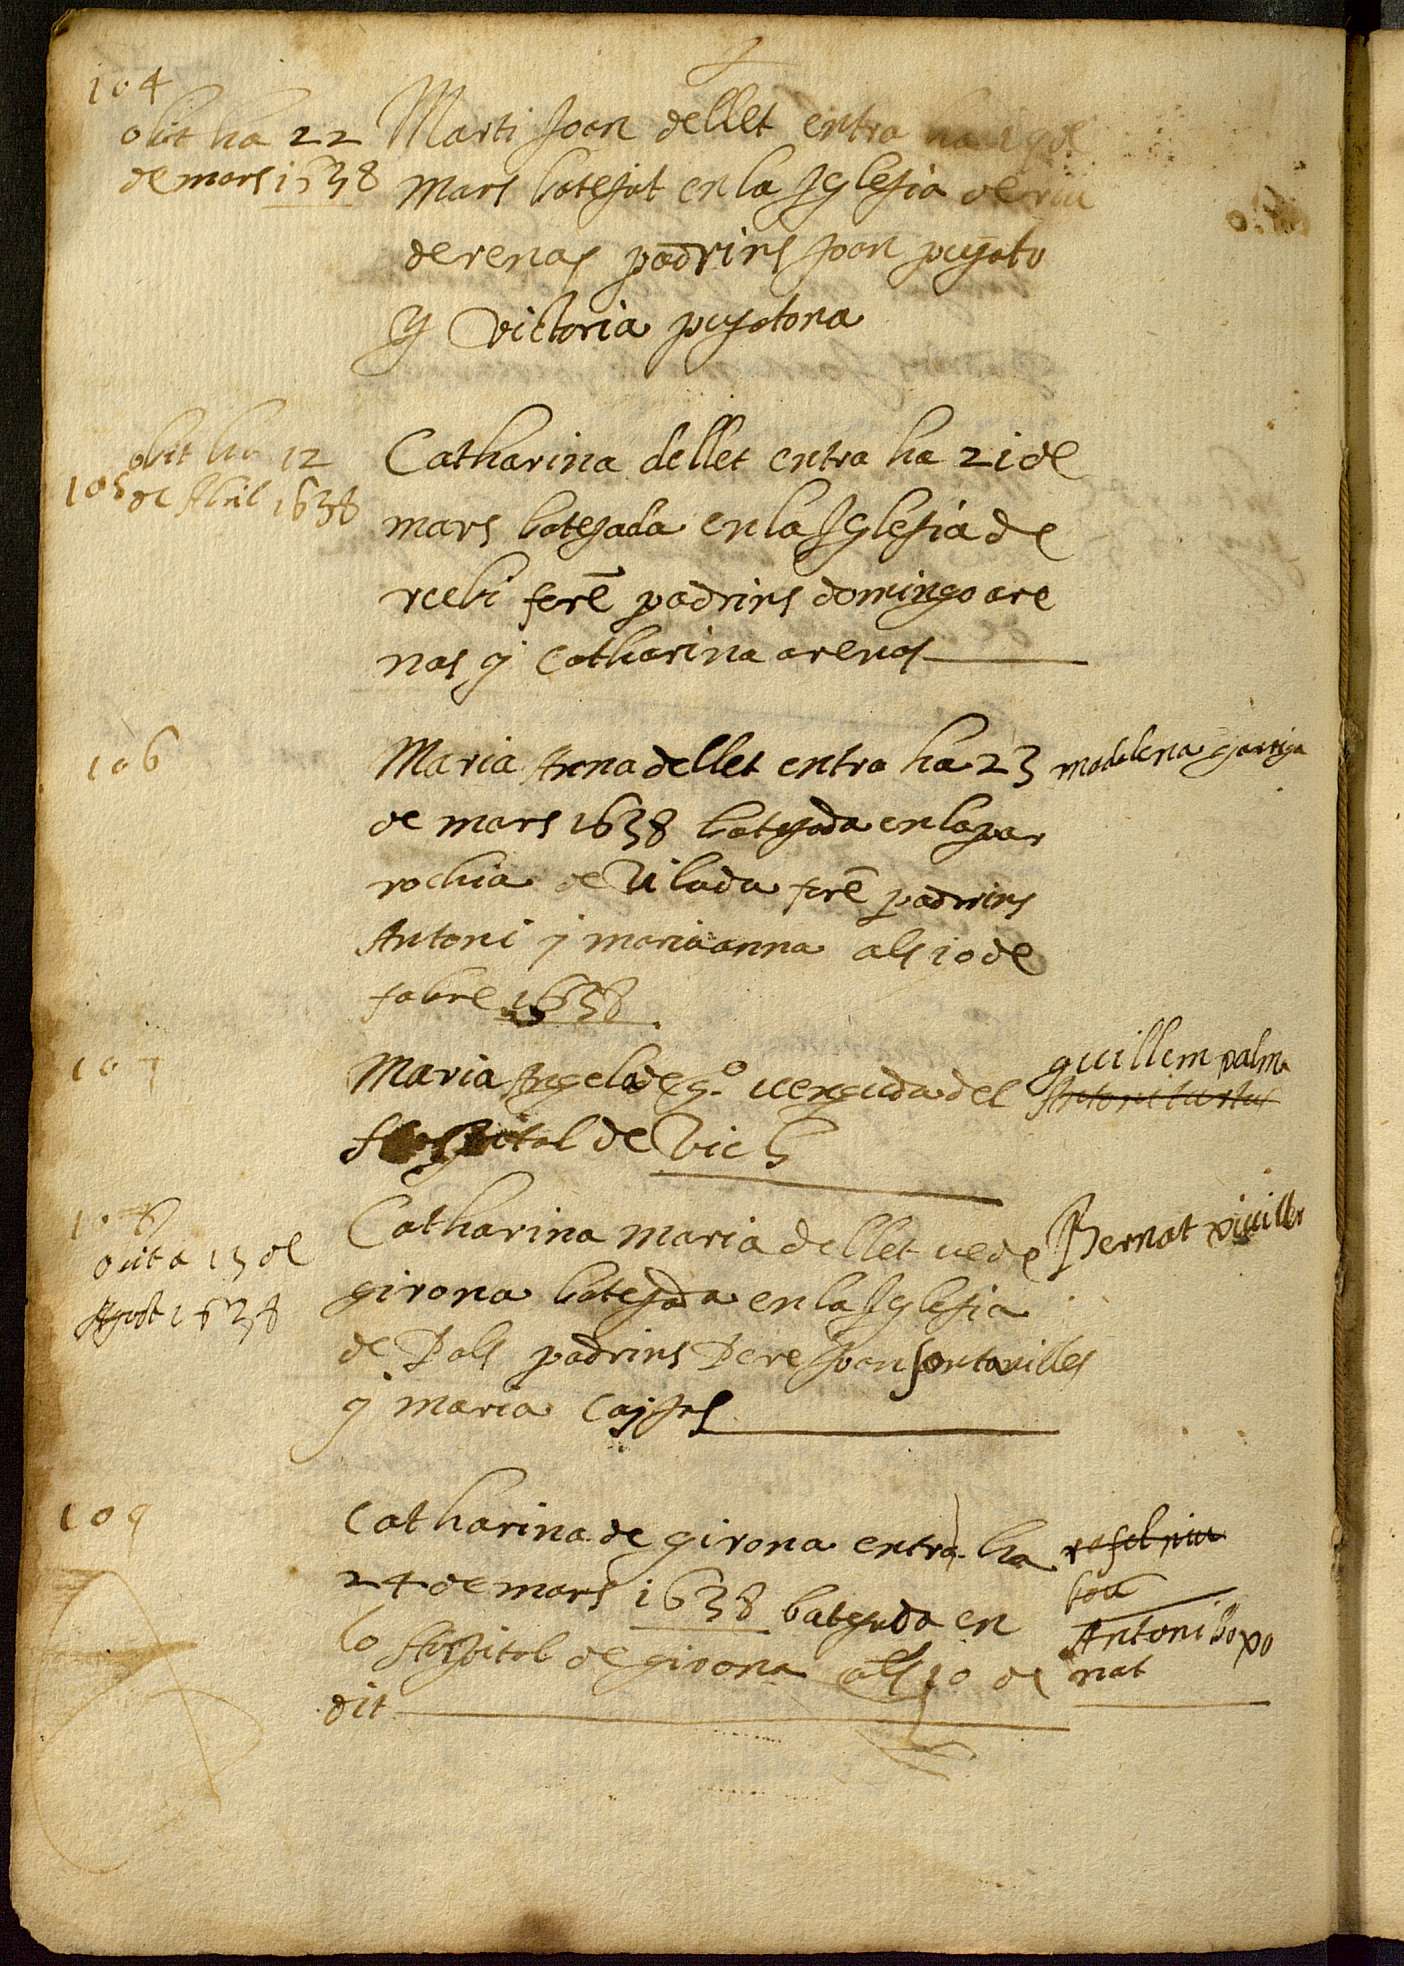 104
obit ha 22
de mars 1638
Marti Joan dellet entra ha 19 de
mars batejat en la Iglesia de riu
derenas padrins Joan pujato
y Victoria pujatona
105
obit ha 12
de Abril 1638
Catharina dellet entra ha 21 de
mars batejada en la Iglesia de
rcebi forē padrins domingo are
nas y Catharina arenas
106
Maria Anna dellet entra ha 23
de mars 1638 batejada en la par
rochia de Vilada forē padrins
Antoni y mariaanna als 10 de
fabre 1638
madalena gartiga
107
Maria Angela de gº venguda del
Hospital de Vich
guillem palma
108
obit a 15 de
Agost 1638
Catharina maria dellet ve de
girona batejada en la Iglesia
de Pals padrins Pere Joan fontanilles
y maria
Bernat
109
Catharina de girona entra ha
24 de mars 1638 batejada en
lo Hospital de girona als 20 de
dit
rafel riu
tou
Antoni
nat